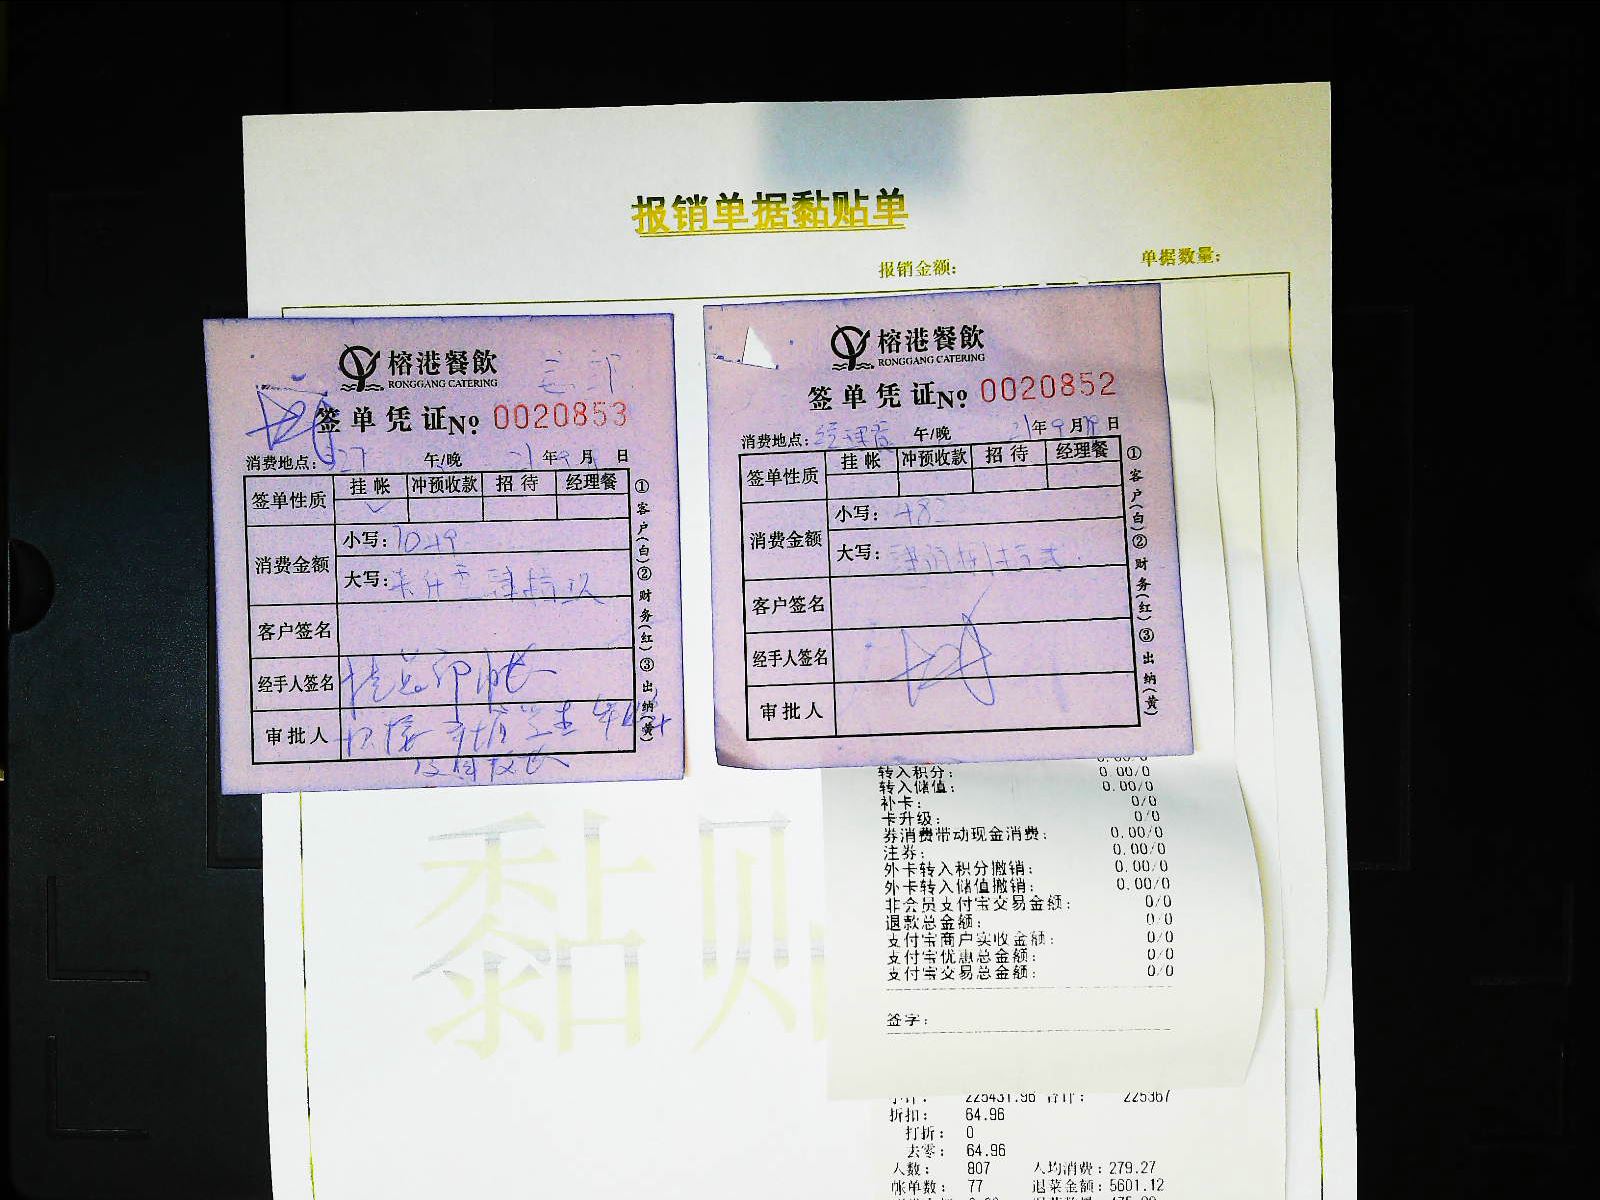 报销单据黏贴单
报销金额：
单据数量：
榕港餐飲
RONGGANG CATERING
签单凭证№ 0020853
消费地点：327 午/晚 21年9月 日
签单性质 挂帐 冲预收款 招待 经理餐
消费金额
小写：7049
大写：
客户签名
经手人签名
审批人
①客户(白)②财务(红)③出纳(黄)
榕港餐飲
RONGGANG CATERING
签单凭证№ 0020852
消费地点：经理餐 午/晚 21年9月 日
签单性质 挂帐 冲预收款 招待 经理餐
消费金额
小写：
大写：
客户签名
经手人签名
审批人
①客户(白)②财务(红)③出纳(黄)
转入积分： 0.00/0
转入储值： 0.00/0
补卡： 0/0
卡升级： 0/0
券消费带动现金消费： 0.00/0
注券： 0.00/0
外卡转入积分撤销： 0.00/0
外卡转入储值撤销： 0.00/0
非会员支付宝交易金额： 0/0
退款总金额： 0/0
支付宝商户实收金额： 0/0
支付宝优惠总金额： 0/0
支付宝交易总金额： 0/0
签字：
黏贴
小计： 225431.96 合计： 225367
折扣： 64.96
打折： 0
去零： 64.96
人数： 807 人均消费：279.27
帐单数： 77 退菜金额：5601.12